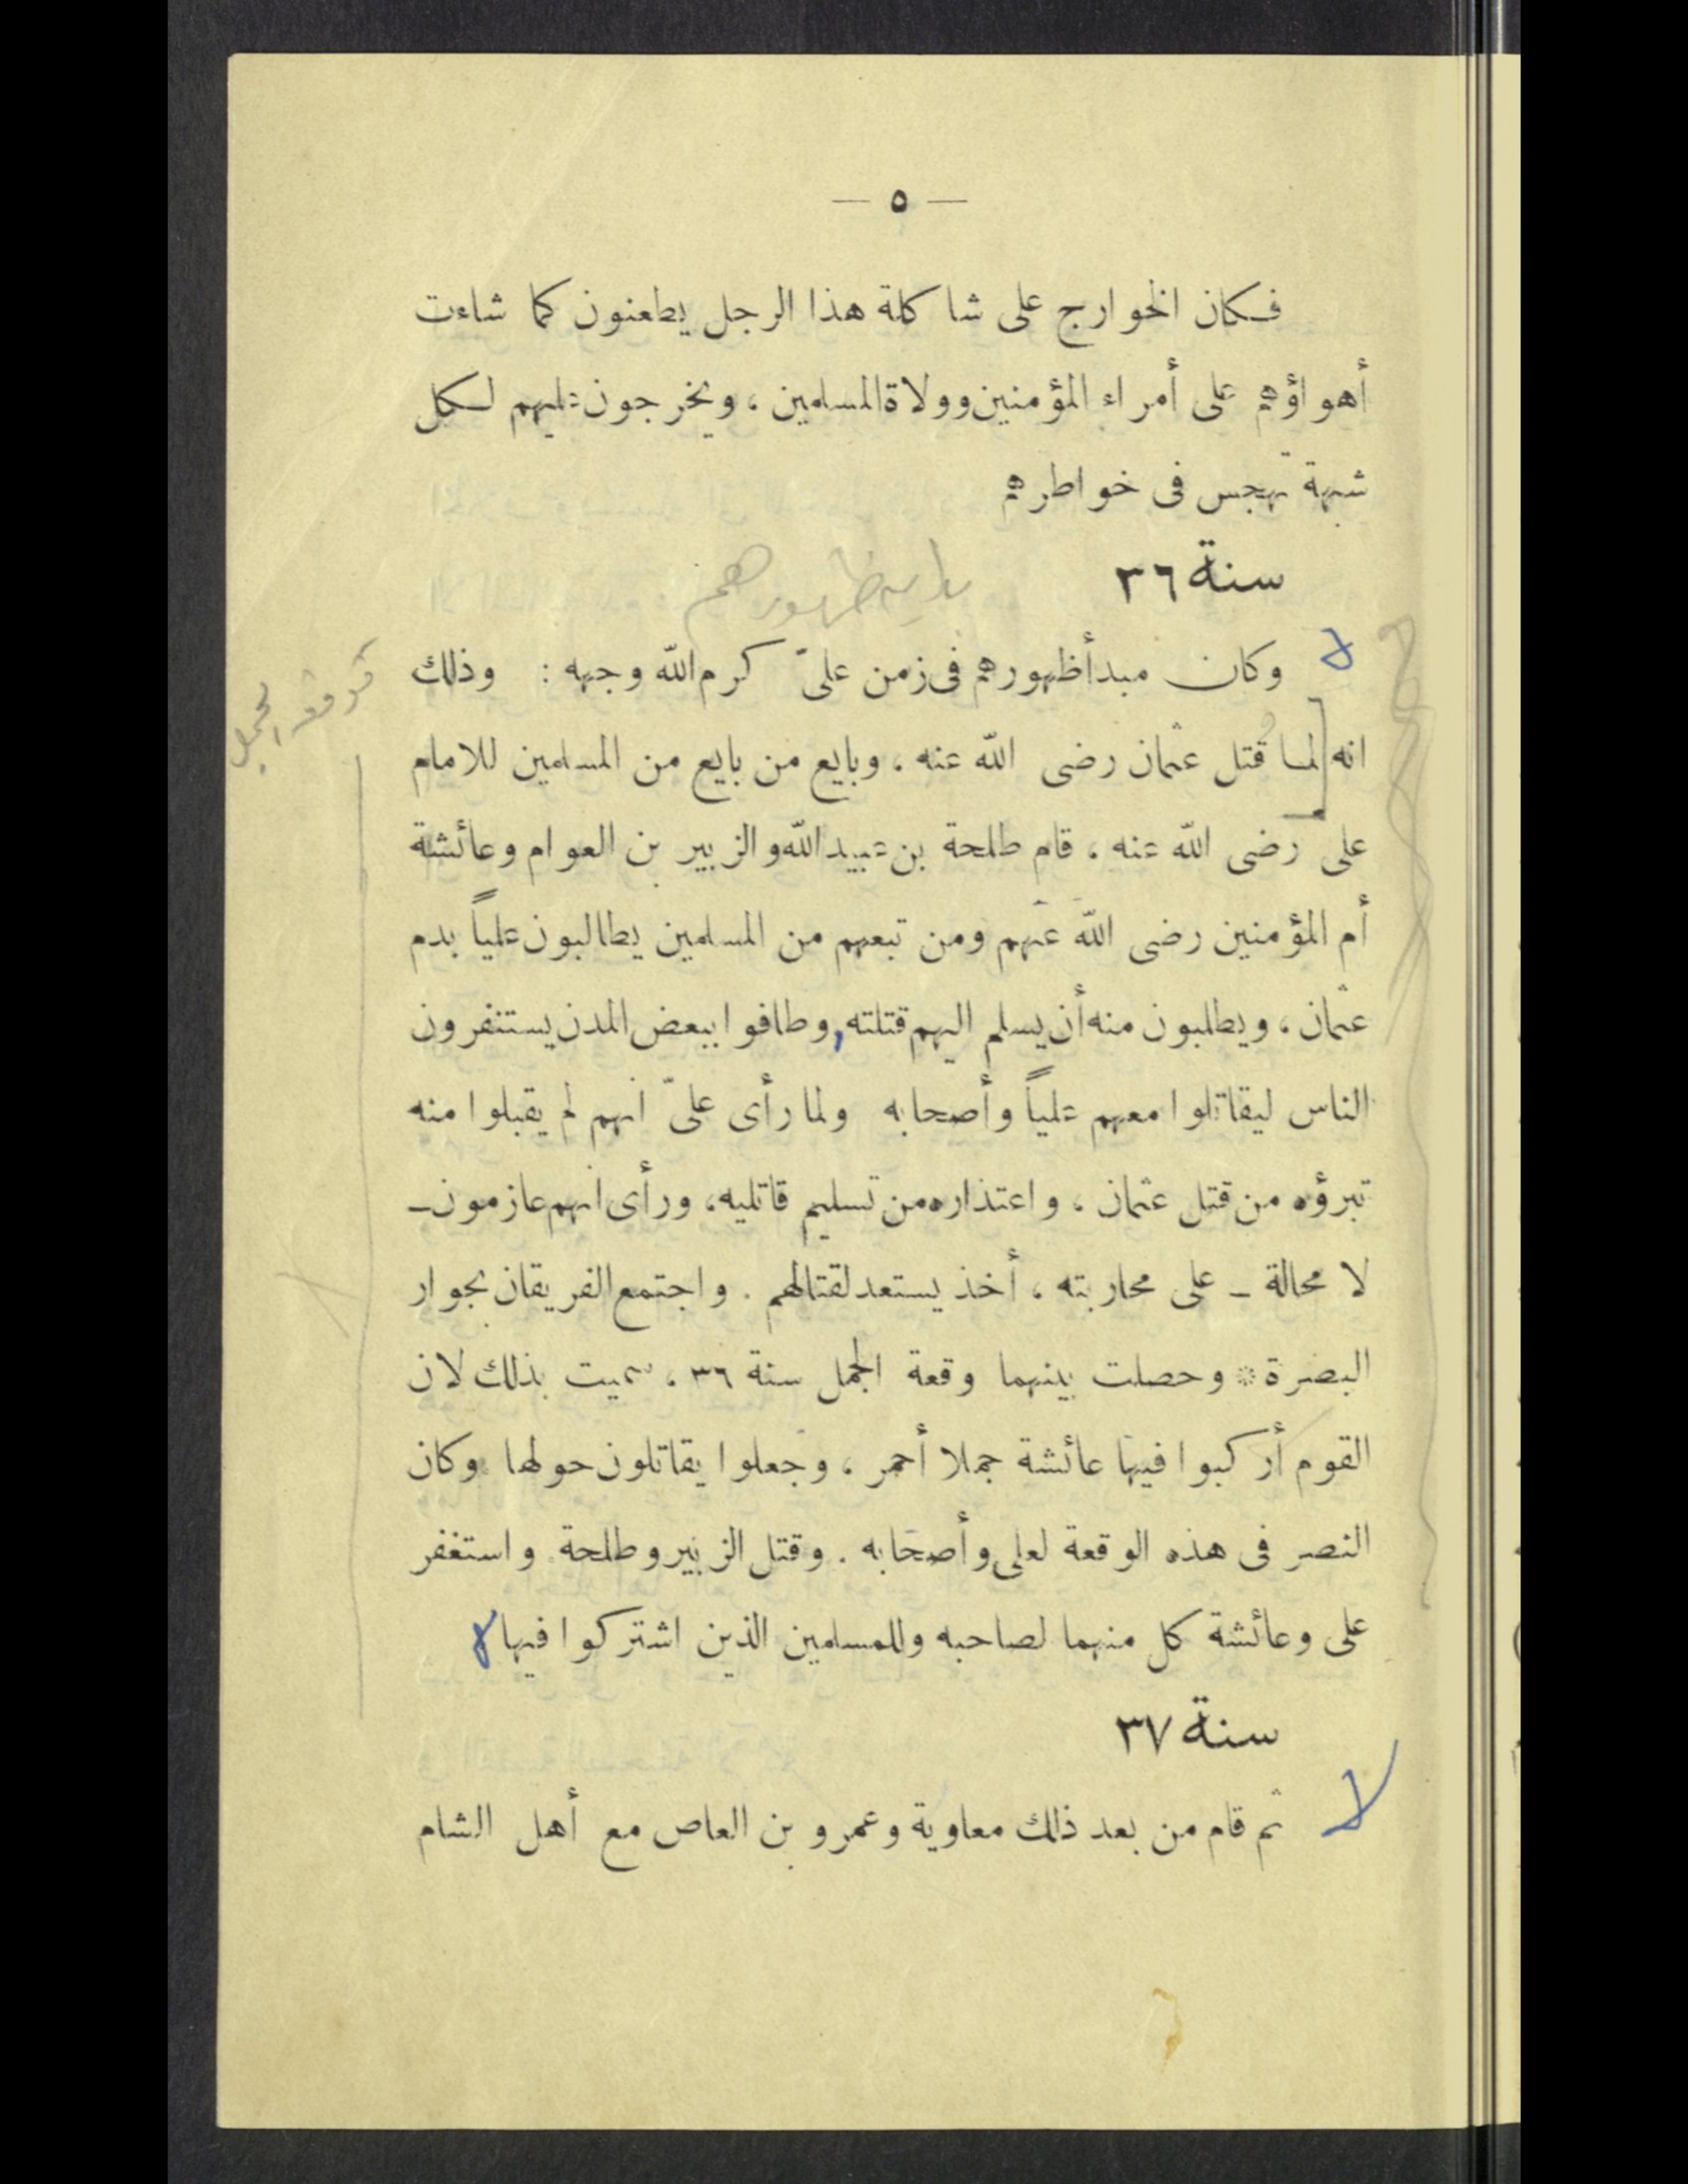 — ٥ —
فكان الخوارج على شاكلة هذا الرجل يطعنون كما شاءت
أهواؤهم على أمراء المؤمنين وولاة المسلمين ، ويخرجون عليهم لكل
شبهة تهجس فى خواطرهم
سنة ٣٦
ظهورهم
وكان مبدأ ظهورهم فى زمن علىّ كرم الله وجهه : وذلك
الجمل
انه لما قُتل عثمان رضى الله عنه ، وبايع من بايع من المسلمين للامام
على رضى الله عنه ، قام طلحة بن عبيد الله والزبير بن العوام وعائشة
أم المؤمنين رضى الله عنهم ومن تبعهم من المسلمين يطالبون علياً بدم
عثمان ، ويطلبون منه أن يسلم اليهم قتلته , وطافوا ببعض المدن يستنفرون
الناس ليقاتلوا معهم علياً وأصحابه ولما رأى علىّ انهم لم يقبلوا منه
تبرؤه من قتل عثمان ، واعتذاره من تسليم قاتليه ، ورأى انهم عازمون ـ
لا محالة ـ على محاربته ، أخذ يستعد لقتالهم . واجتمع الفريقان بجوار
البصرة * وحصلت بينهما وقعة الجمل سنة ٣٦ ، سميت بذلك لان
القوم أركبوا فيها عائشة جملا أحمر ، وجعلوا يقاتلون حولها وكان
النصر فى هذه الوقعة لعلى وأصحابه . وقتل الزبير وطلحة واستغفر
على وعائشة كل منهما لصاحبه وللمسلمين الذين اشتركوا فيها
سنة ٣٧
ثم قام من بعد ذلك معاوية وعمرو بن العاص مع أهل الشام